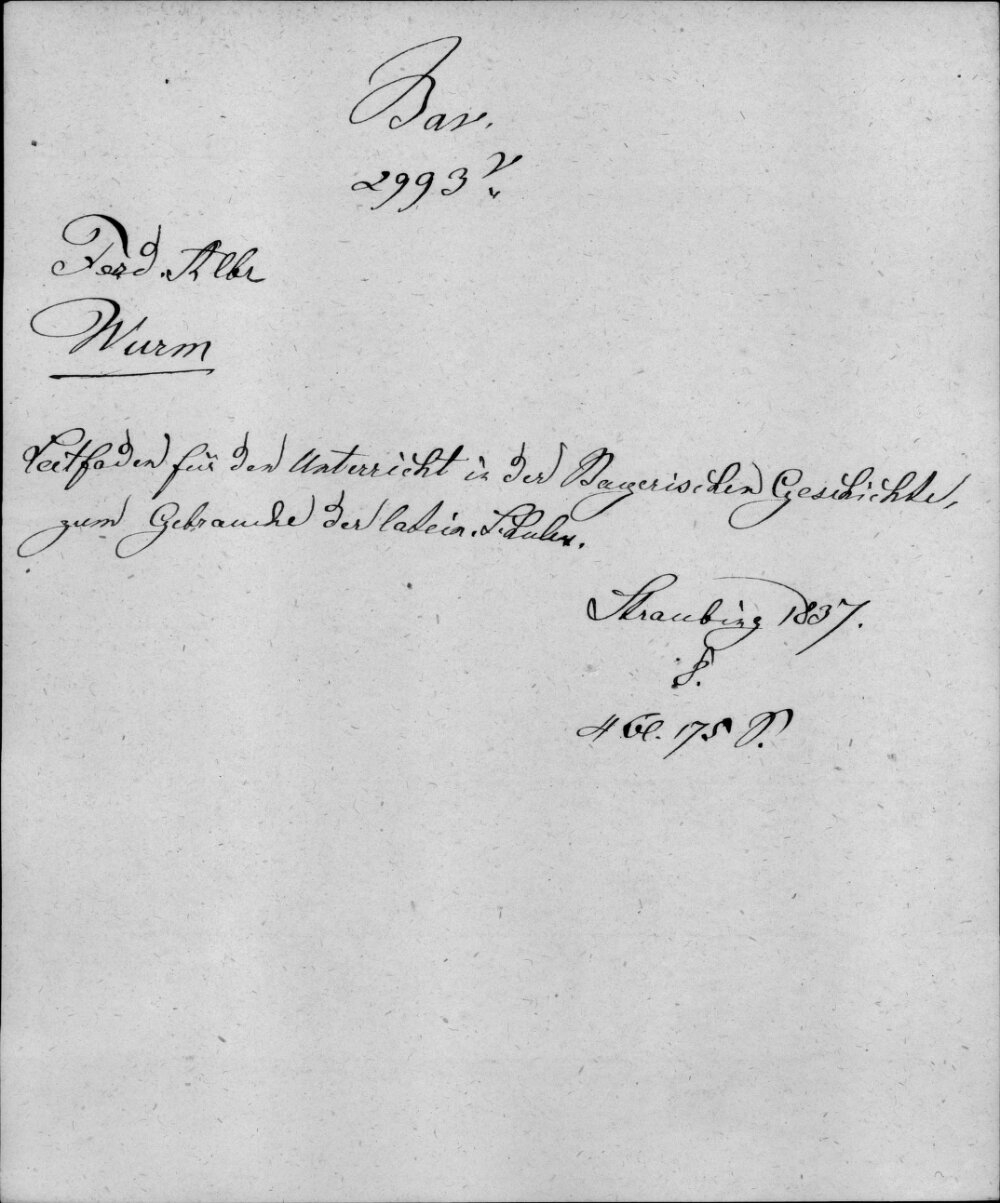 Bav.
2993 v
Ferd. Albr
Wurm
Leitfaden für den Unterricht in der Bayerischen Geschichte,
zum Gebrauche der latein. Schulen.
Straubing 1837.
8.
4 Bl. 175 S.